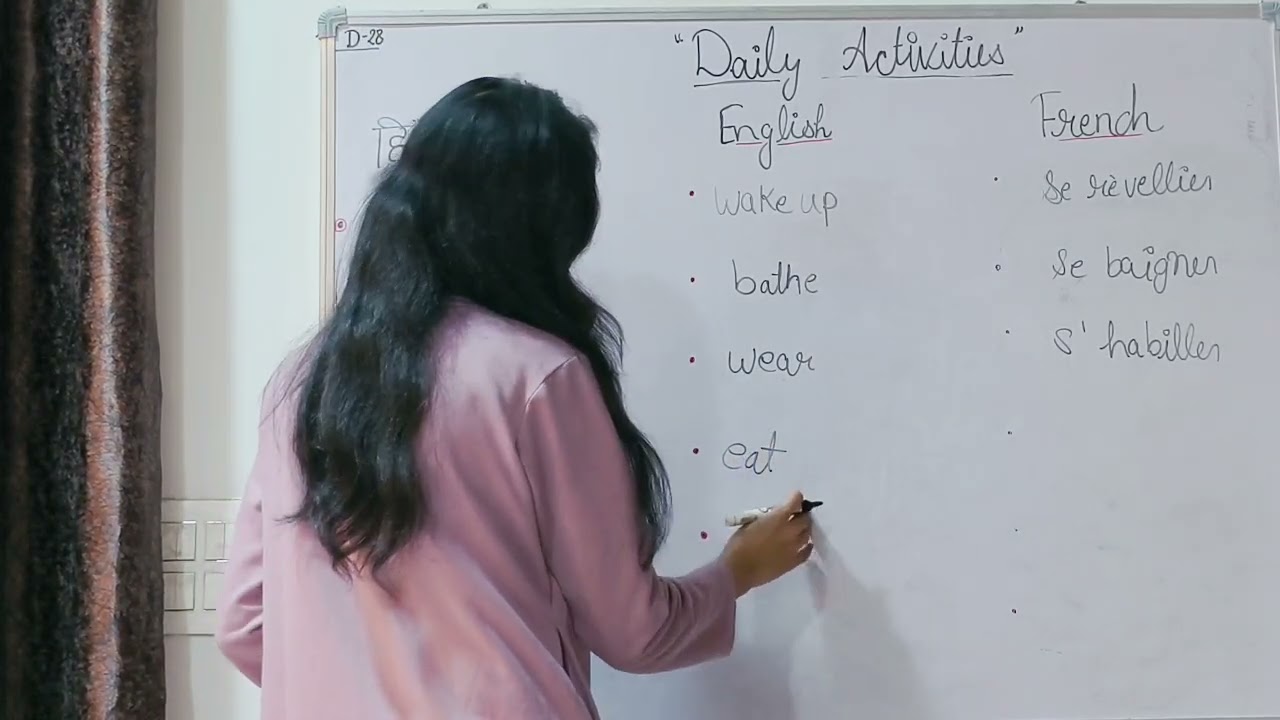 D-28
"Daily Activities"
English
French
wake up
se rèvellier
bathe
se baigner
wear
s'habiller
eat